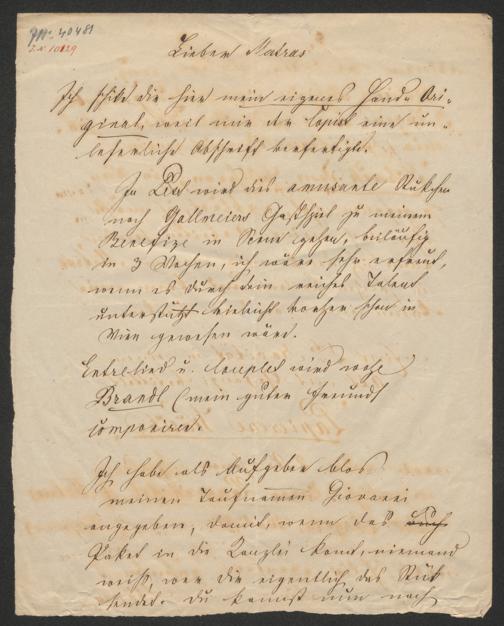 J.N. 40481
J.N. 10129
Lieber Matras
Ich schike dir hier mein eigenes Hand-Ori-
ginal, weil mir der Copist eine un-
leserliche Abschrift verfertigte.
In wird dies amusante Stükchen
nach Gallmeiers Gastspiel zu meinem
Benefize in Scene gehen, beiläufig
in 3 Wochen, ich wäre sehr erfreut,
wenn es durch dein reiches Talent
unterstützt vieleicht vorher schon in
Wien gewesen wäre.
Entrelied u. Couplet wird wohl
Brandl (mein guter Freund)
componiren.
Ich habe als Aufgeber blos
meinen Taufnamen Giovanni
angegeben, damit, wenn das
Paket in die Kanzlei komt, niemand
weiß, wer dir eigentlich das Stük
sendet. Du kannst nun nach